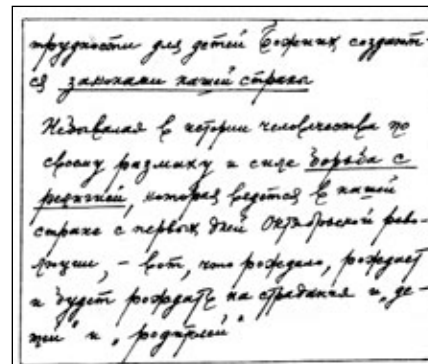 трудности для детей Божиих создают-
ся законами нашей страны
Небывалая в истории человечества по
своему размаху и силе борьба с
религией, которая ведется в нашей
стране с первых дней Октябрьской рево-
люции, - вот, что рождало, рождает
и будет рождать на страдания и „де-
тей" и „родителей"